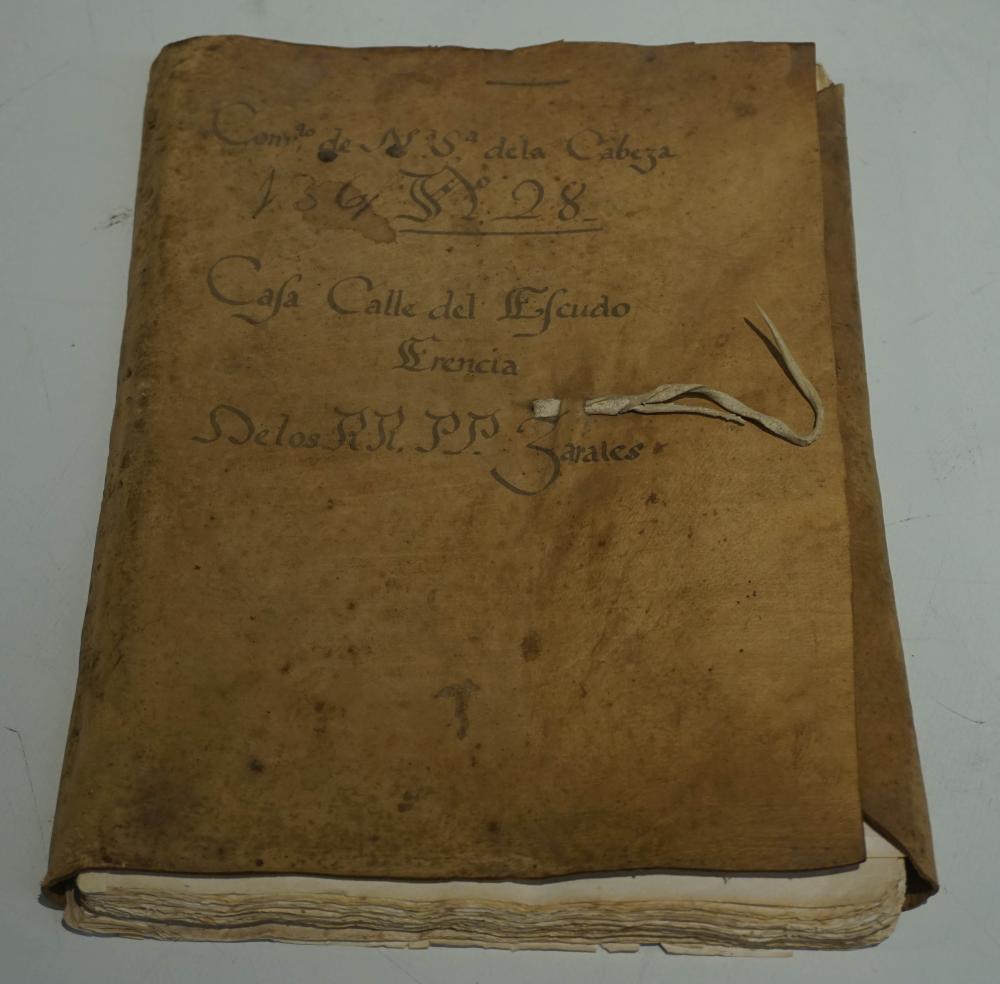 Com.to de N.ª S.ª dela Cabeza
136 N.º 28.
Casa Calle del Escudo
Erencia
Delos RR. PP. Zarates